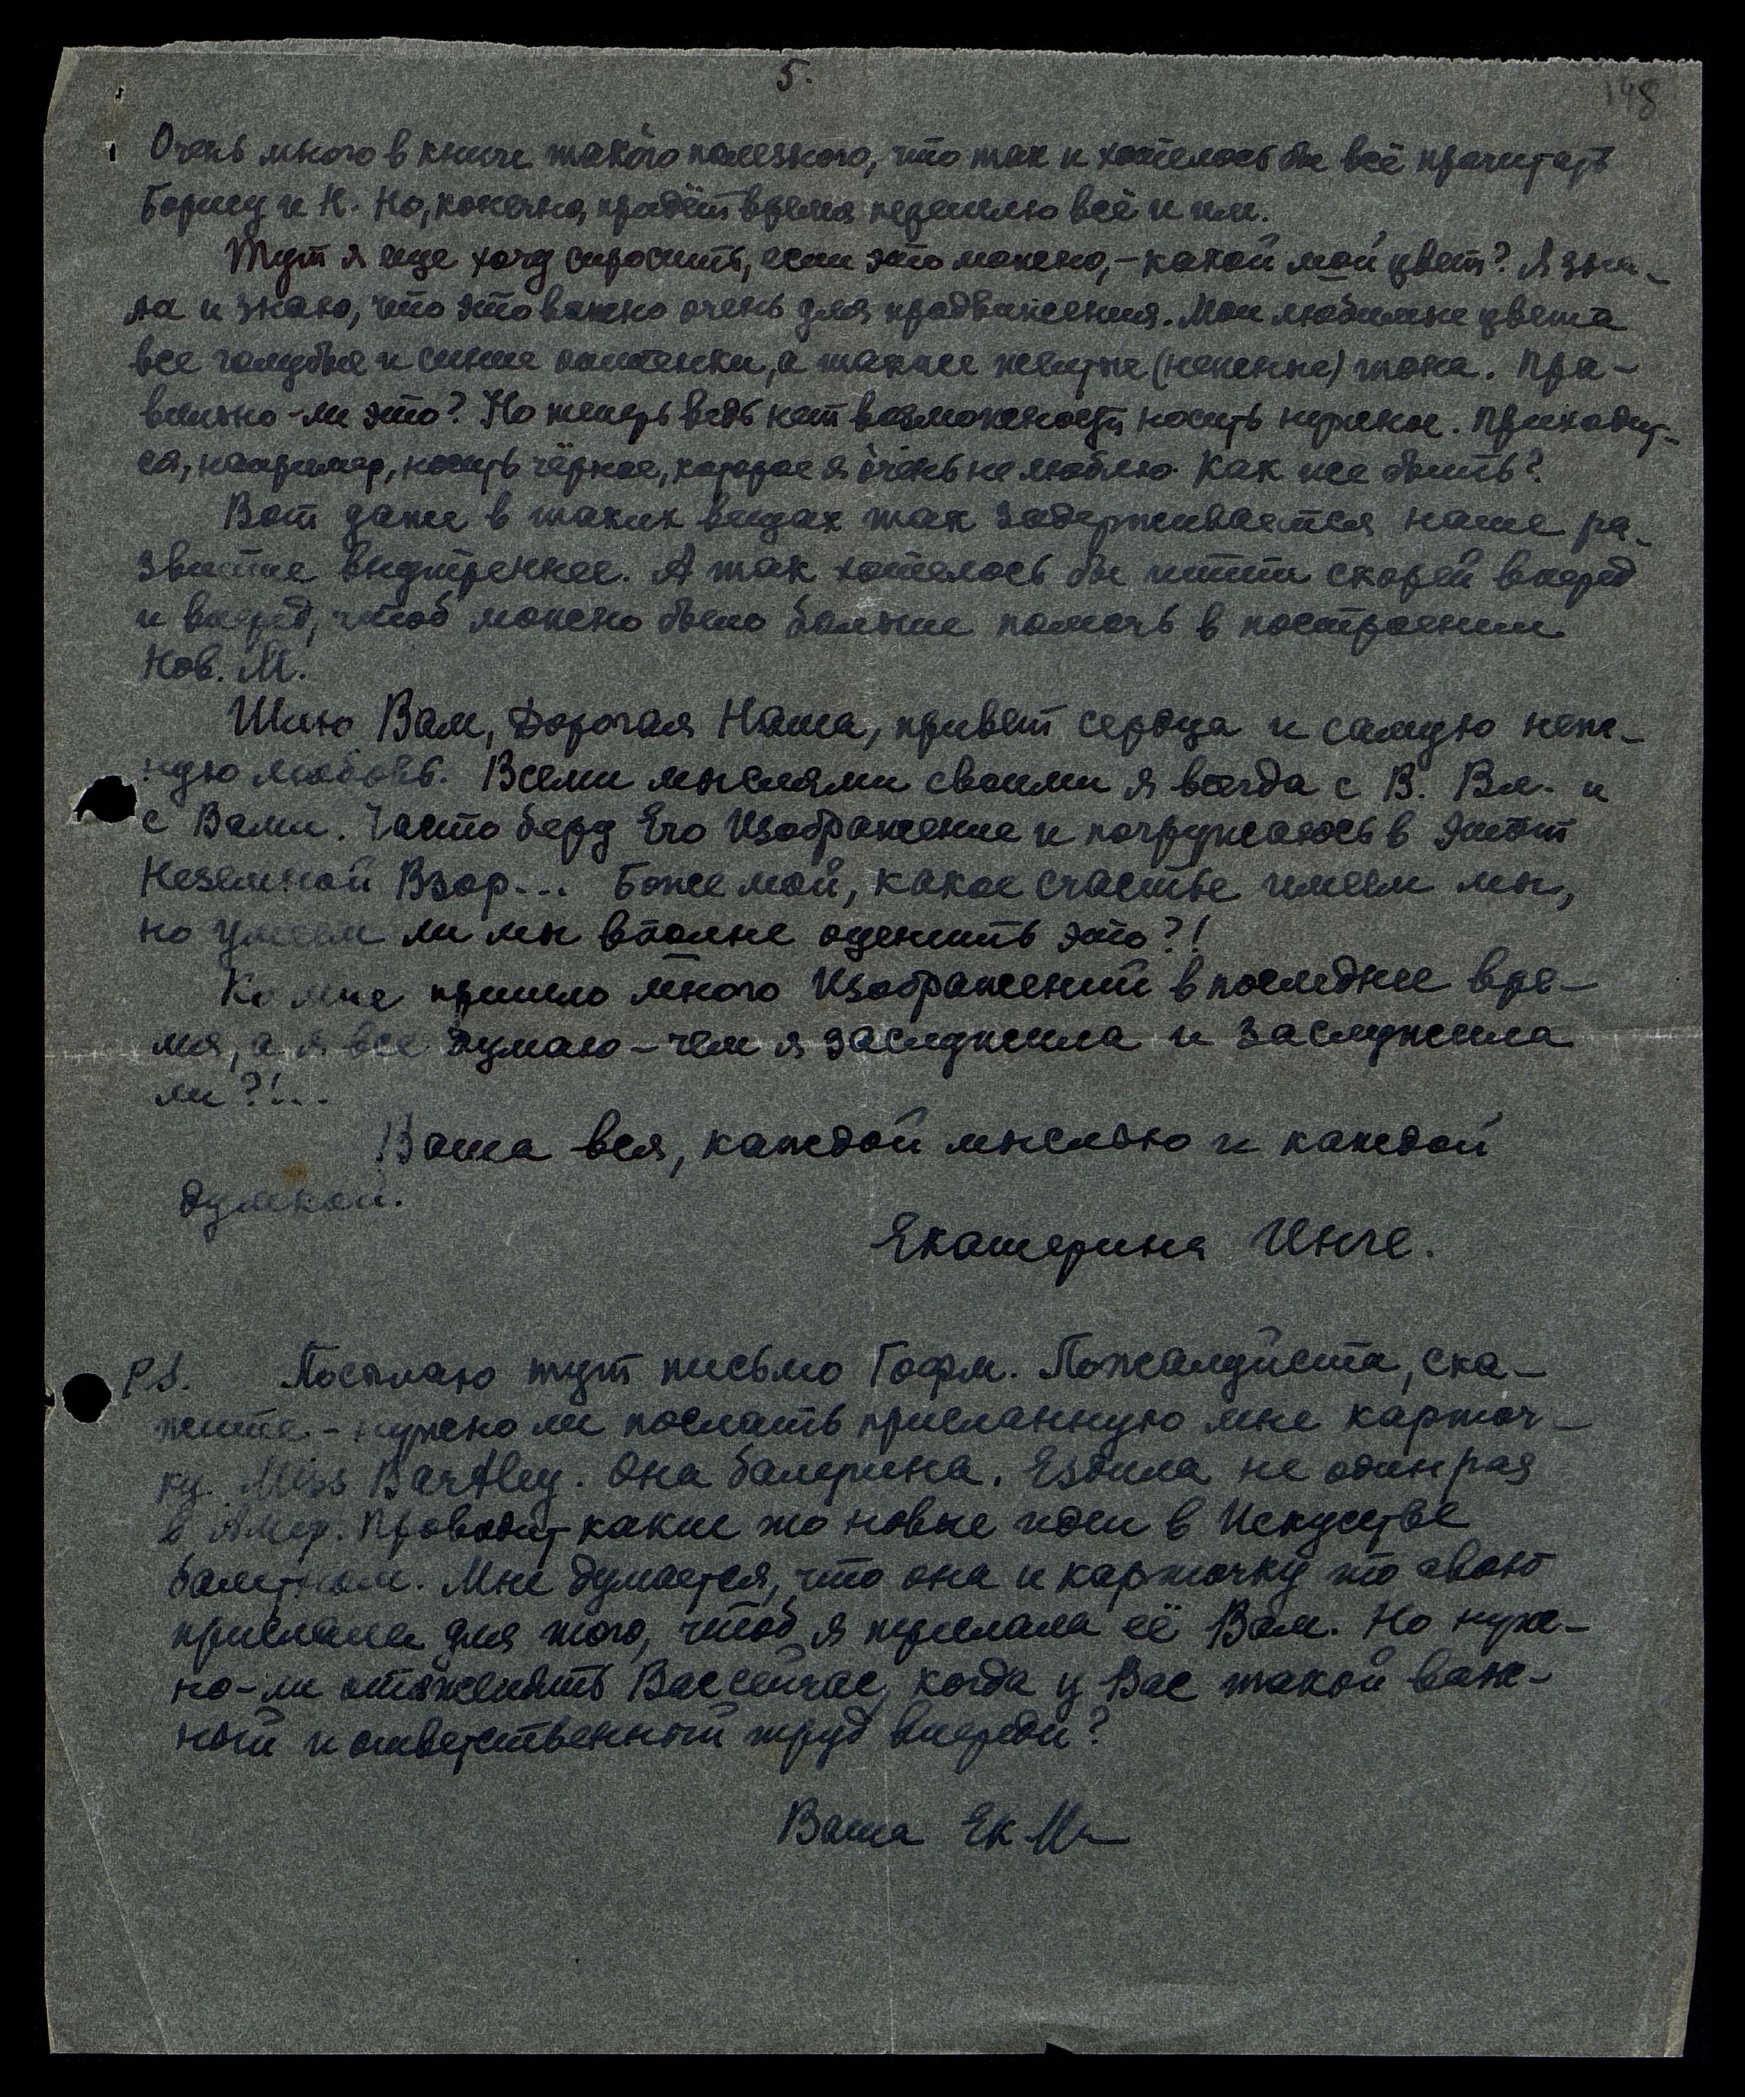 5.
198
Очень много в книге такого полезного, что так и хотелось бы всё прочитать
Борису и Н. Но, конечно, придёт время перешлю всё и им.
Тут я еще хочу спросить, если это можно, – какой мой цвет? Я зна-
ла и знаю, что это важно очень для продвижения. Мои любимые цвета
все голубые и синие оттенки, а также желтые (нежные) тона. Пра-
вильно-ли это? Но теперь ведь нет возможности носить нужное. Приходит-
ся, например, носить чёрное, которое я очень не люблю. Как же быть?
Вот даже в таких вещах так задерживается наше ра-
звитие внутреннее. А так хотелось бы итти скорей вперед
и вперед, чтоб можно было больше помочь в построении
Нов. М.
Шлю Вам, Дорогая Наша, привет сердца и самую неж-
ную любовь. Всеми мыслями своими я всегда с В. Вл. и
с Вами. Часто беру Его Изображение и погружаюсь в этот
Неземной Взор... Боже мой, какое счастье имеем мы,
но умеем ли мы вполне оценить это?!
Ко мне пришло много Изображений в последнее вре-
мя, а я все думаю – чем я заслужила и заслужила
ли?!..
Ваша вся, каждой мыслью и каждой
думкой.
Екатерина Инге.
P.S. Посылаю тут письмо Гофм. Пожалуйста, ска-
жите – нужно ли послать присланную мне карточ-
ку Miss Bartley. Она балерина. Ездила не один раз
в Амер. Проводит какие то новые идеи в Искустве
балетном. Мне думается, что она и карточку то свою
прислала для того, чтоб я переслала её Вам. Но нуж-
но-ли отяжелять Вас сейчас, когда у Вас такой важ-
ный и ответственный труд впереди?
Ваша Ек